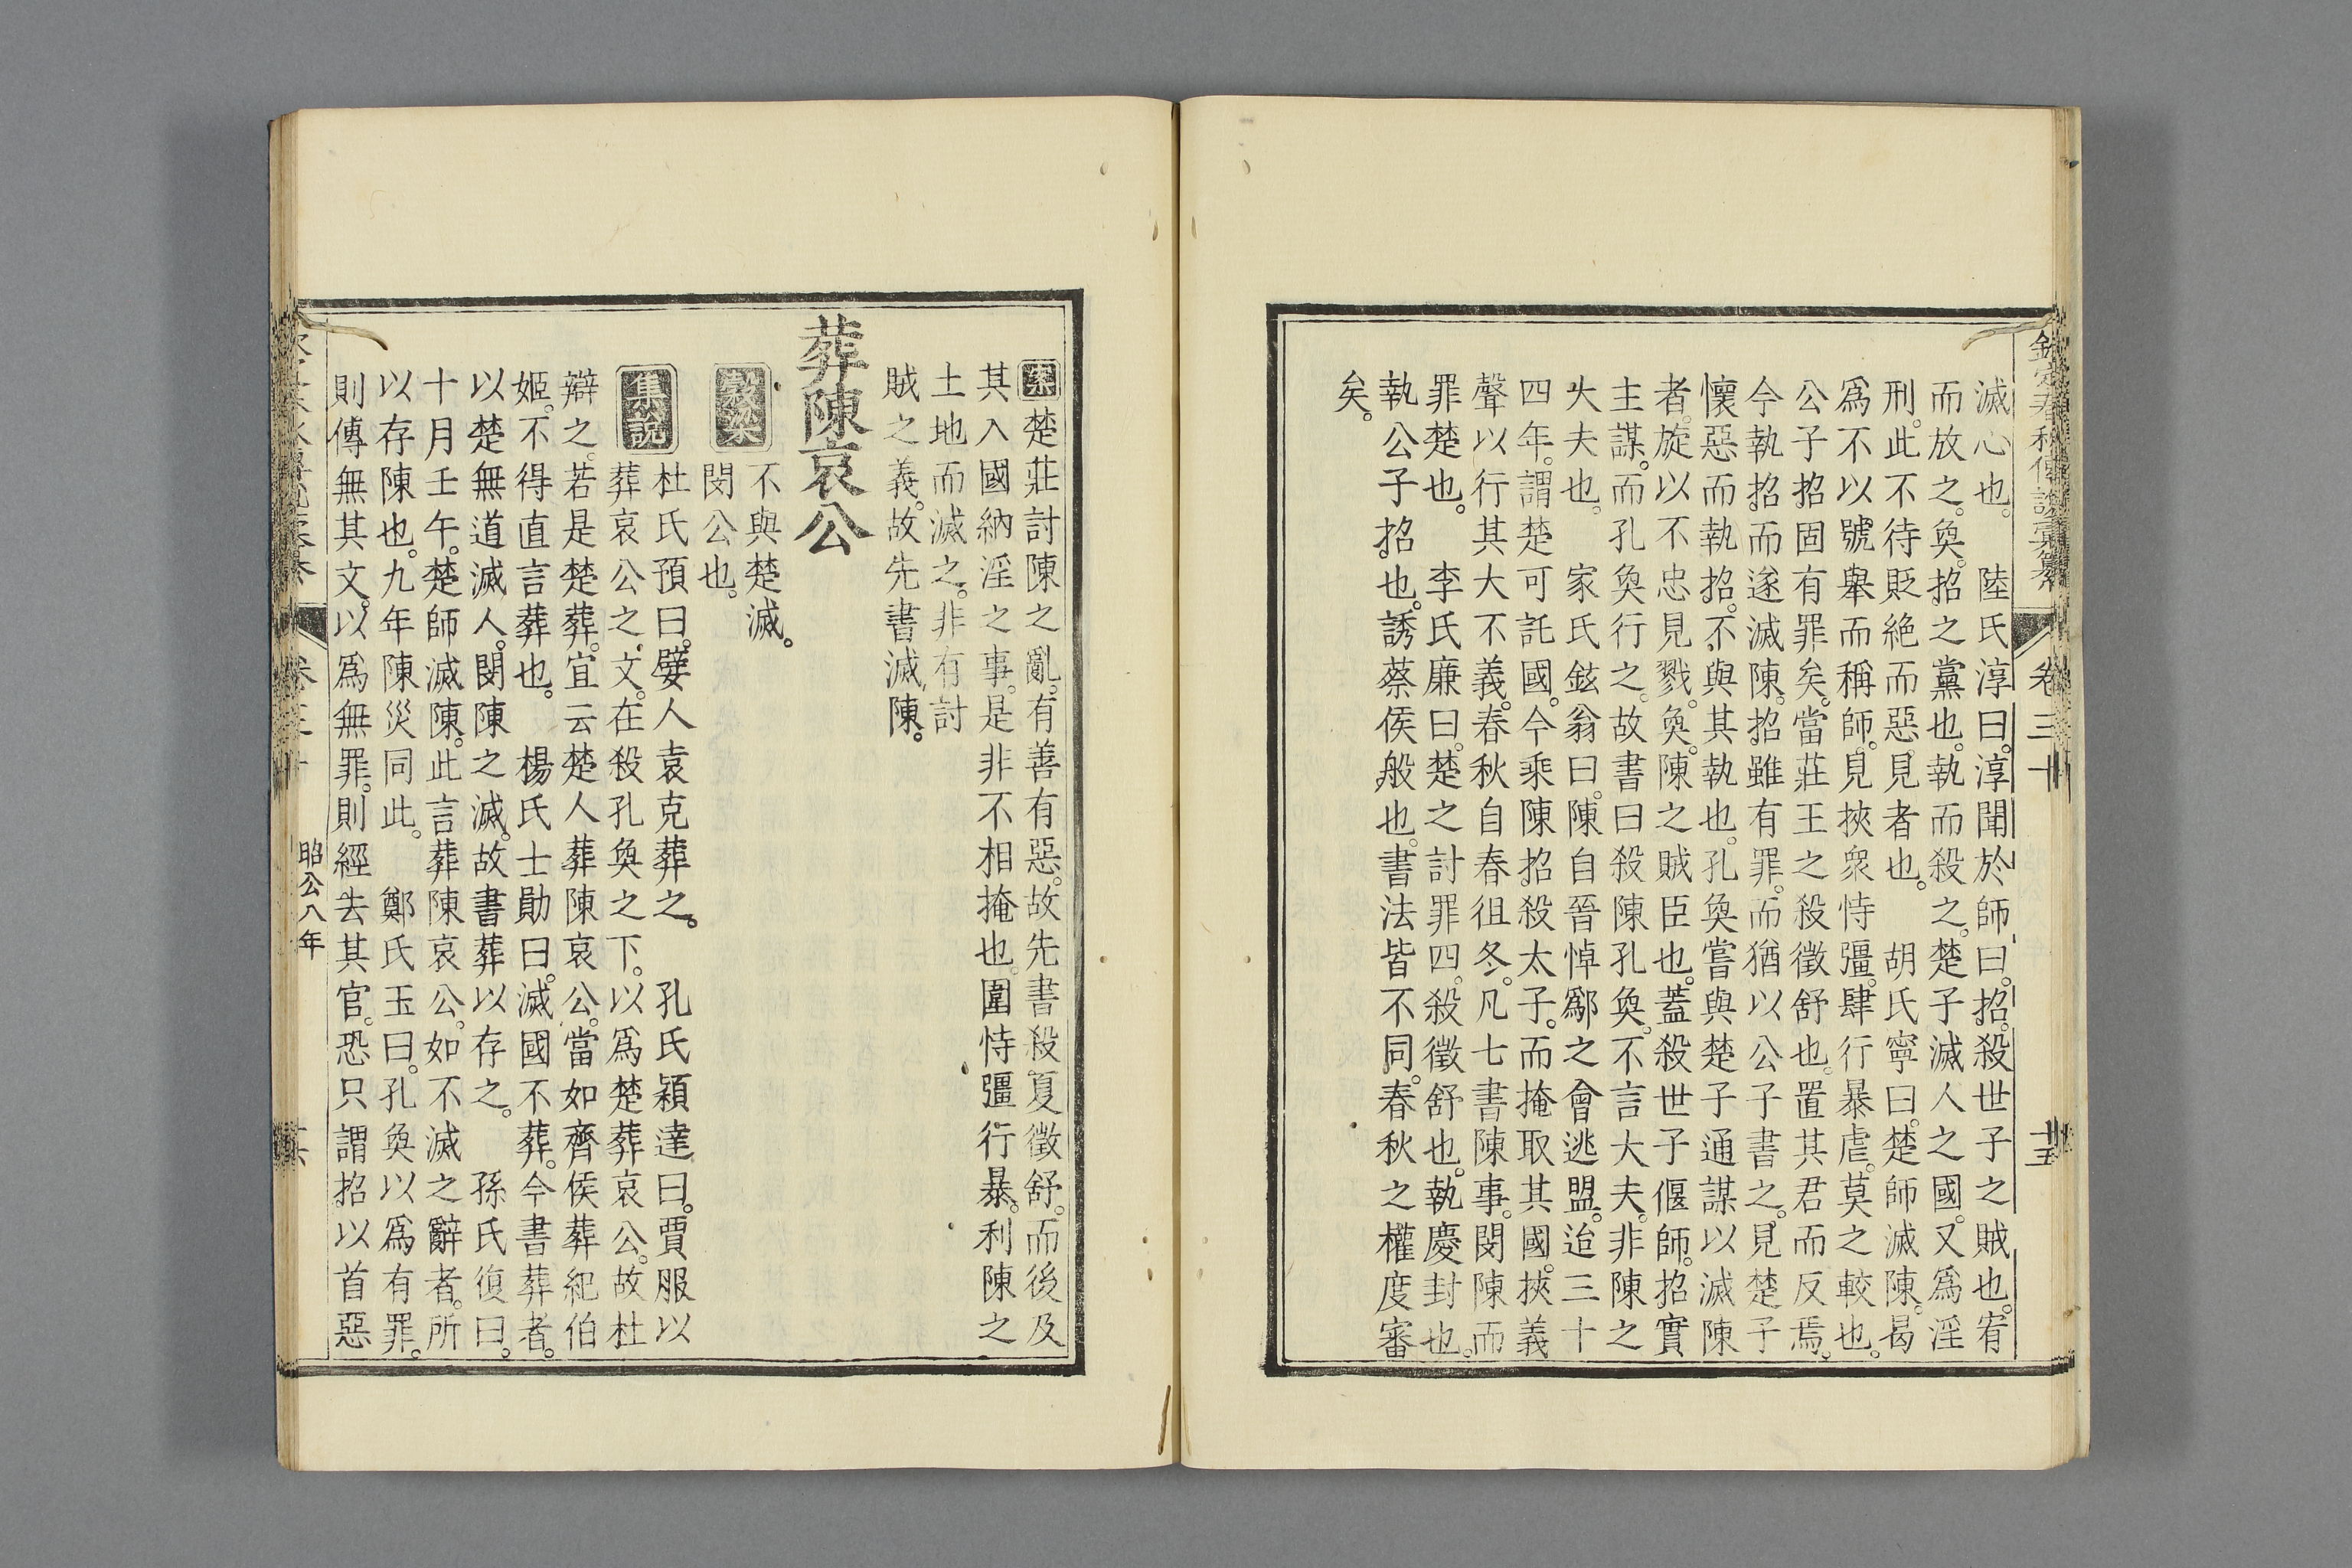 欽定春秋傳說彙纂 卷三十 十五
滅心也。 陸氏淳曰。淳聞於師曰。招。殺世子之賊也。宥
而放之。奐。招之黨也。執而殺之。楚子滅人之國。又爲淫
刑。此不待貶絶而惡。見者也。 胡氏寧曰。楚師滅陳。曷
爲不以號舉而稱師。見挾衆恃彊。肆行暴虐。莫之較也。
公子招固有罪矣。當莊王之殺徵舒也。置其君而反焉。
今執招。而遂滅陳。招雖有罪。而猶以公子書之。見楚子
懷惡而執招。不與其執也。孔奐嘗與楚子通謀以滅陳
者。旋以不忠見戮。奐。陳之賊臣也。蓋殺世子偃師。招實
主謀。而孔奐行之。故書曰殺陳孔奐。不言大夫。非陳之
大夫也。 家氏鉉翁曰。陳自晉悼鄬之會逃盟。迨三十
四年。謂楚可託國。今乘陳招殺太子。而掩取其國。挾義
聲以行其大不義。春秋自春徂冬。凡七書陳事。閔陳而
罪楚也。 李氏廉曰。楚之討罪四。殺徵舒也。執慶封也。
執公子招也。誘蔡侯般也。書法皆不同。春秋之權度審
矣。
案 楚莊討陳之亂。有善有惡。故先書殺夏徵舒。而後及
其入國納淫之事。是非不相掩也。圍恃彊行暴。利陳之
土地而滅之。非有討
賊之義。故先書滅陳。
葬陳哀公
穀梁 不與楚滅。
閔公也。
集說 杜氏預曰。嬖人袁克葬之。 孔氏穎達曰。賈服以
葬哀公之文。在殺孔奐之下。以爲楚葬哀公。故杜
辯之。若是楚葬。宜云楚人葬陳哀公。當如齊侯葬紀伯
姬。不得直言葬也。 楊氏士勛曰。滅國不葬。今書葬者。
以楚無道滅人。閔陳之滅。故書葬以存之。 孫氏復曰。
十月壬午。楚師滅陳。此言葬陳哀公。如不滅之辭者。所
以存陳也。九年陳災同此。 鄭氏玉曰。孔奐以爲有罪。
則傳無其文。以爲無罪。則經去其官。恐只謂招以首惡
卷三十 昭公八年